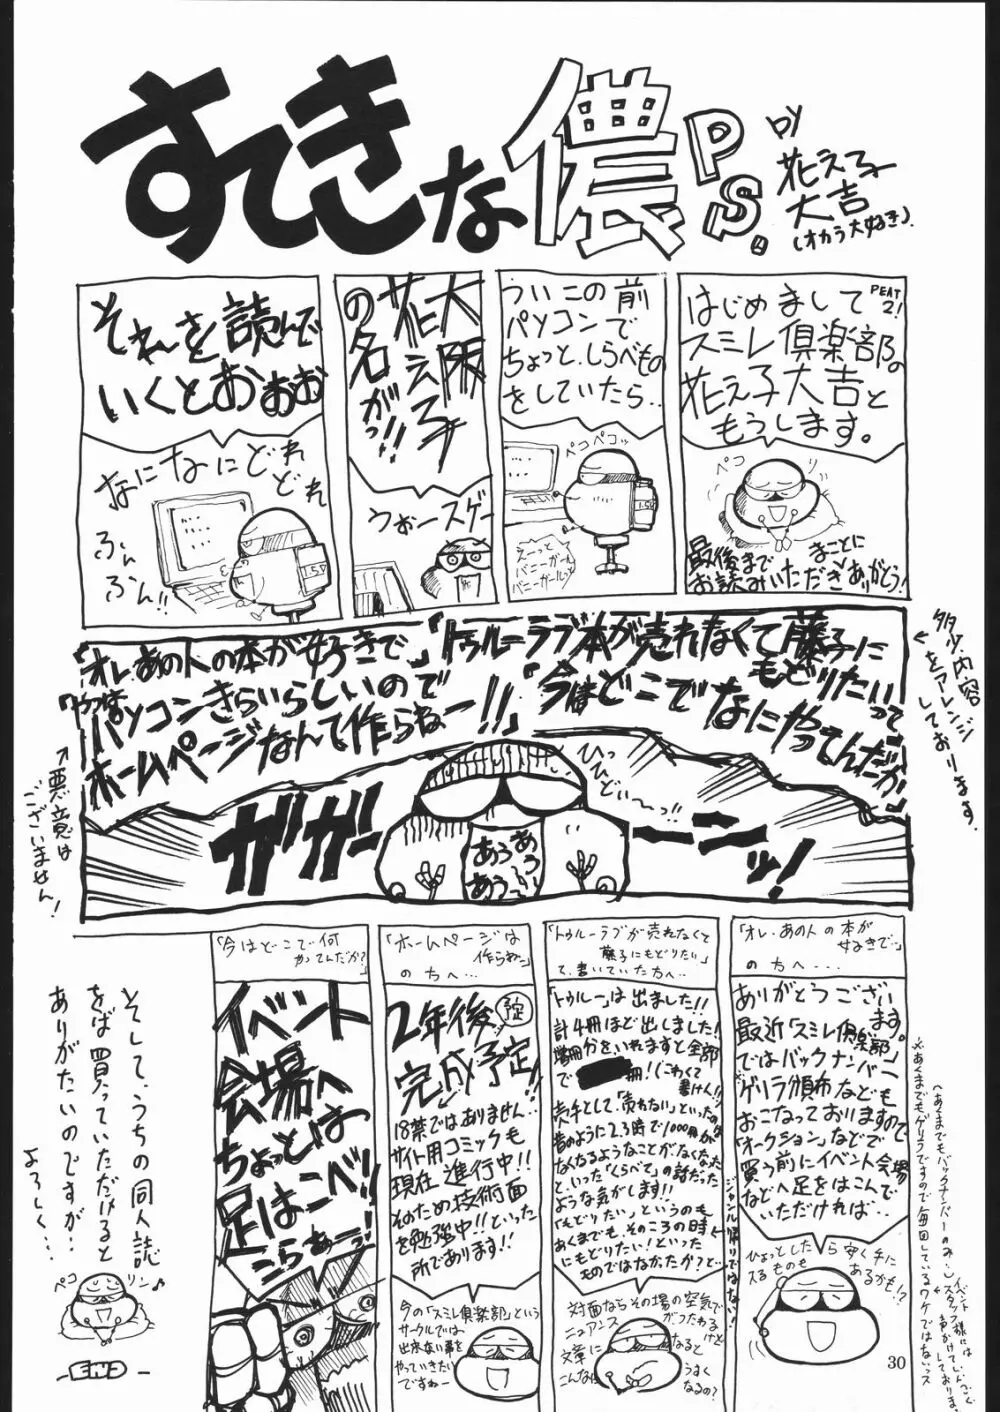 すてきな儂 P.S.
by
花え子
大吉
(オカラ大好き).
PEAT
2!
はじめまして
スミレ倶楽部の
花え子大吉と
もうします。
ペコ
リ
最後まで
お読みいただき
まことに
ありがとう!
ういこの前
パソコンで
ちょっと、しらべもの
をしていたら‥
ペコペコッ
えーっと
バニーガール
バニーガールと
大阪
花え子
の名が!!
うおースゲー
それを読んで
いくとおぉぉ
なになにどれ
どれ
ふん
ふん!!
多少内容
をアレンジ
しております。
「トゥルーラブ本が売れなくて藤子に
もどりたいって」
「今はどこでなにやってんだか」
「オレあの人の本が好きで」
パソコンきらいらしいので
ホームページなんて作らねー!!」
→悪意は
ございません!
ひっ
ひどい〜っ!!
ガガーーーンッ!
あうあうあうあう
「オレ、あの人の本が
好きで…」
の方へ‥‥
ありがとうございます。
最近「スミレ倶楽部」
ではバックナンバー
ゲリラ頒布なども
おこなっておりますので
「オークション」などで
買う前にイベント会場
などへ足をはこんで
いただければ‥
ひょっとしたら安く手に
入るものも
あるかも!?
「トゥルーラブが売れなくて
藤子にもどりたい」
て、書いていた方へ‥
「トゥルー」は出ました!!
計4冊ほど出しました!
増刷分をいれますと全部
で
冊!(こわくて
書けん!!)
売手として、「売れない」といったのは
昔のように2.3時で1000冊が
なくなるようなことがなくなった
といった「くらべて」の話だった
ような気がします!!
「もどりたい」というのも
あくまでも、そのころの時
にもどりたい!といった
ものではなかったか?と‥
←ジャンル帰りではない!
対面ならその場の空気で
ニュアンス
がつたわる
けど
文章に
なると
こんなに
うまく
なるの?
「ホームページは
作らねー」
の方へ…
2年後予定
完成予定
18禁ではありません‥
サイト用コミックも
現在進行中!!
そのため技術面
を勉強中!!といった
所であります!!
今の「スミレ倶楽部」という
サークルでは
出来ない事を
やっていきたい
ですねー
「今はどこで何
やってんだか?」
イベント
会場へ
ちょっとは
足はこべ!!
こらぁーっ!
そして、うちの同人誌
をば買っていただけると
ありがたいのですが‥
よろしく…
ペコ
リン♪
-END-
※あくまでもゲリラですので毎回しているワケではないっス
(あくまでもバックナンバーのみ…)
30